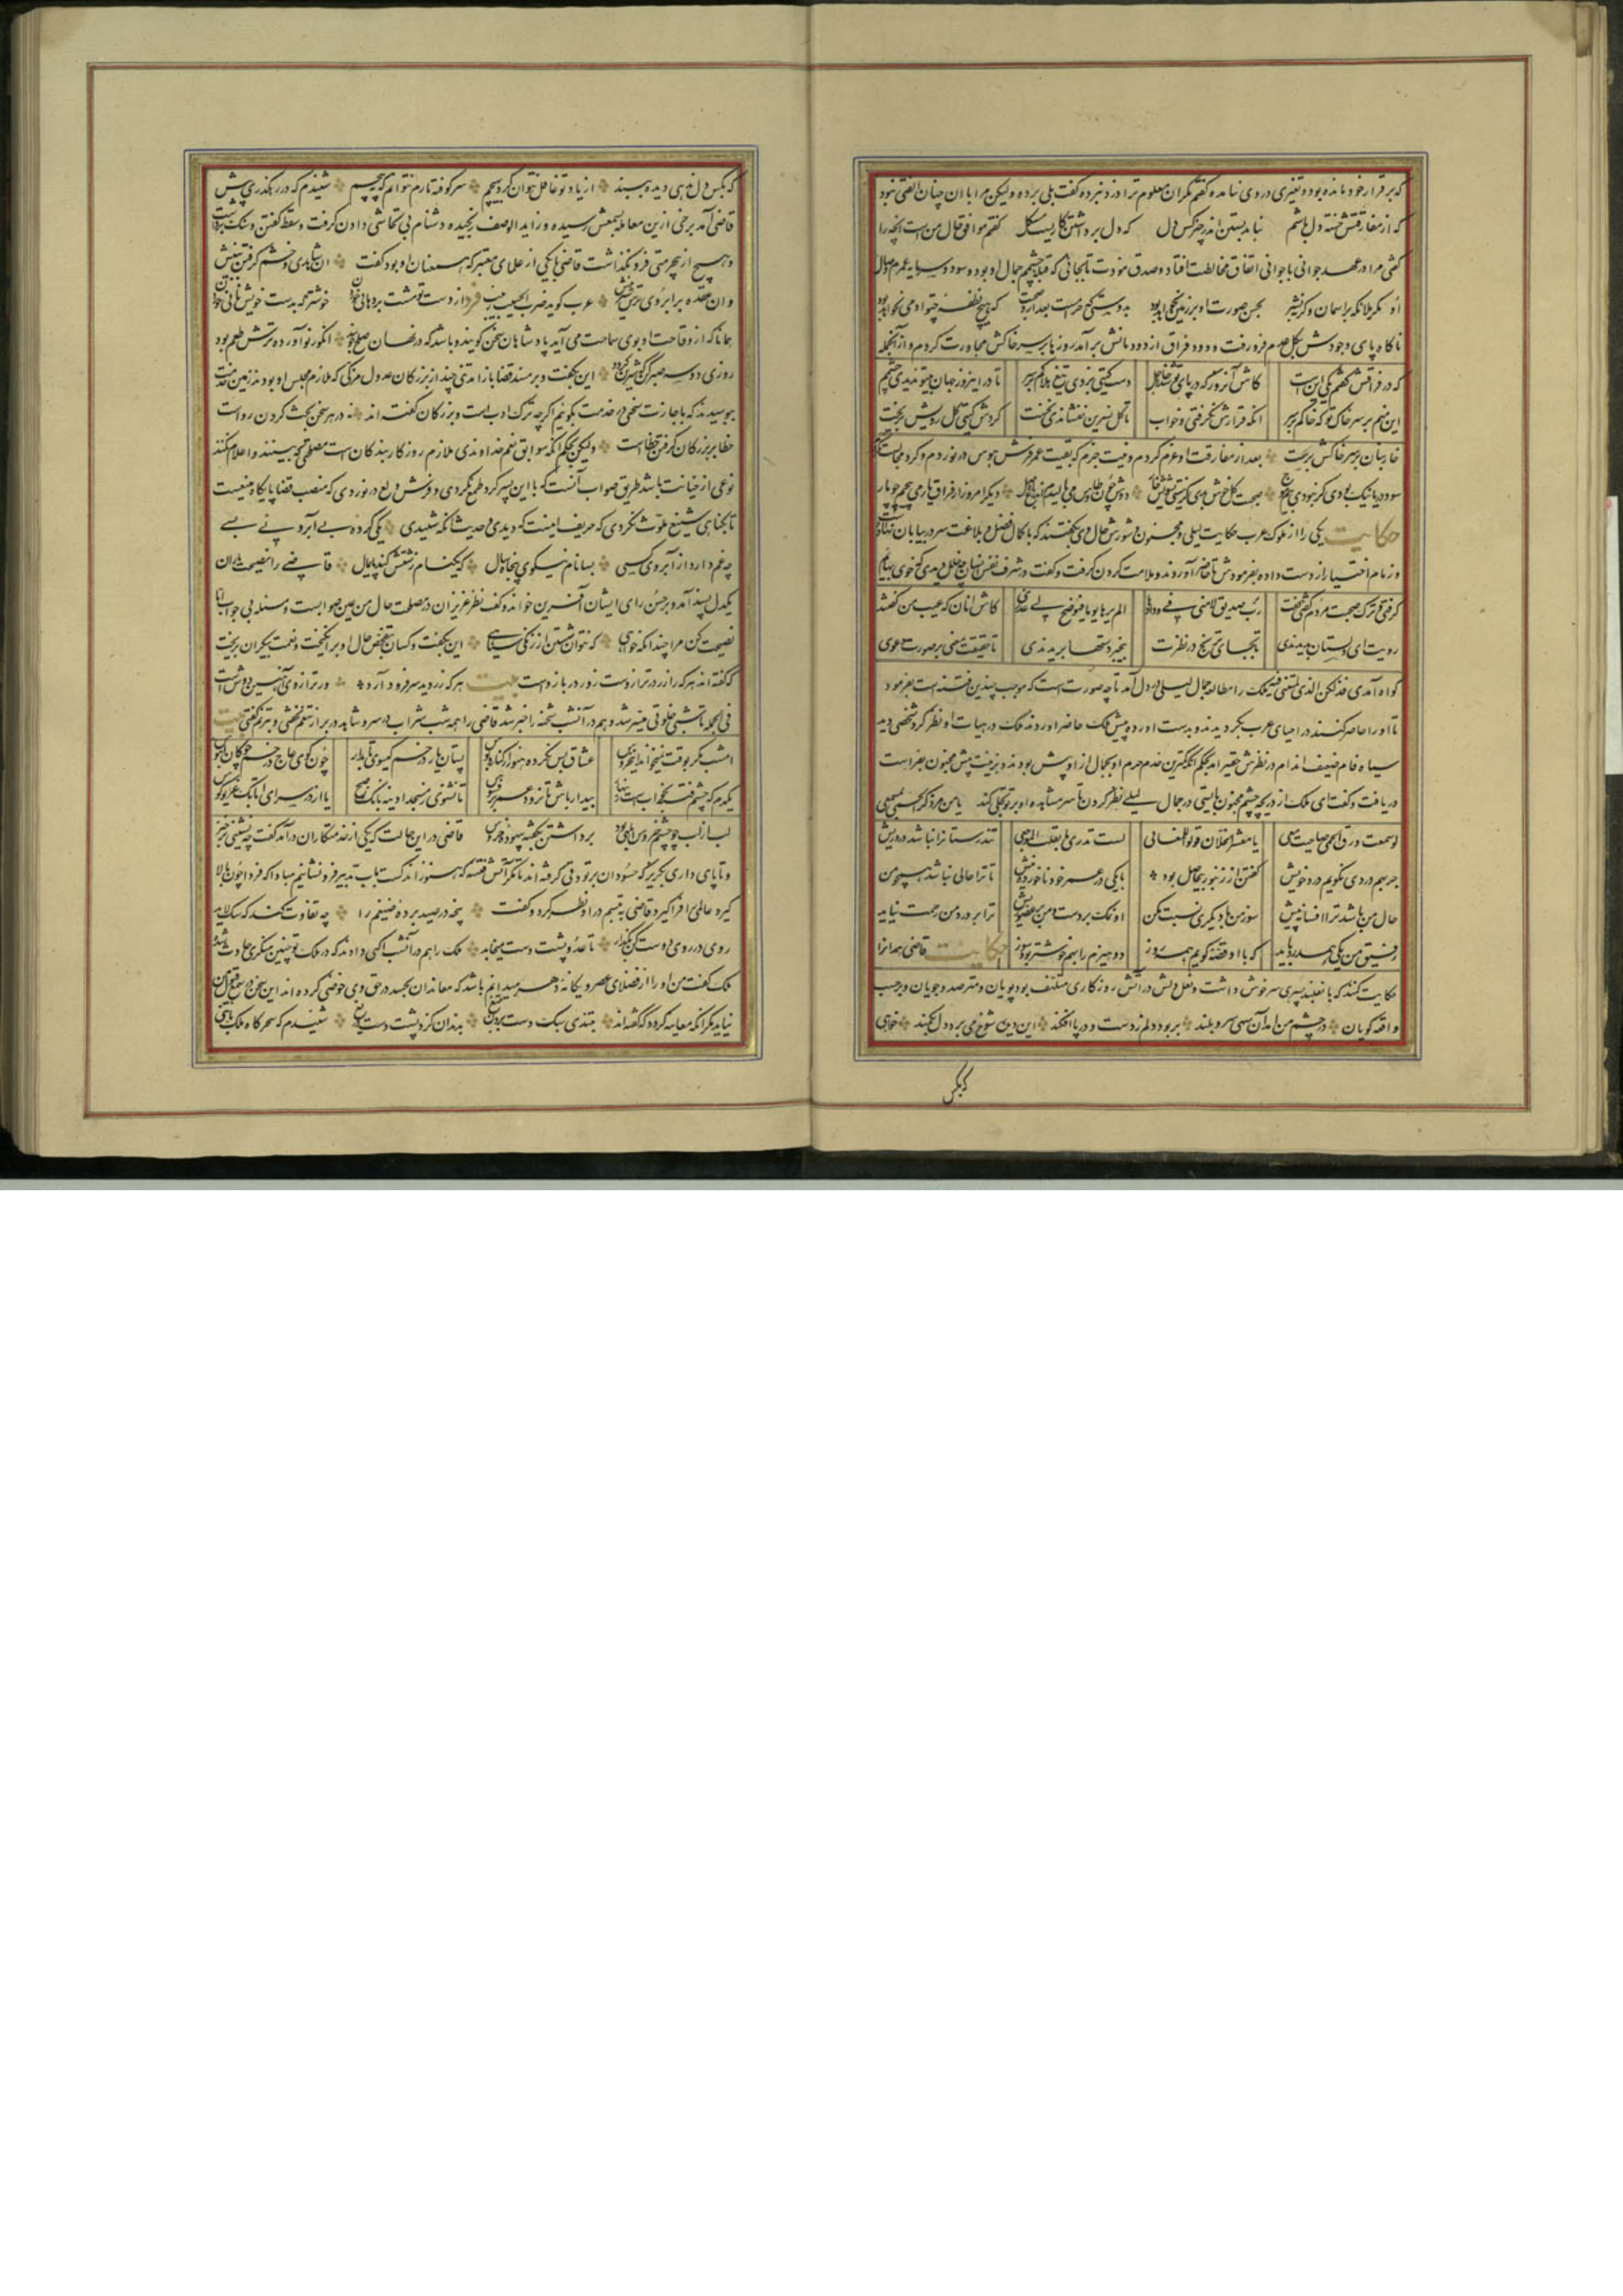 که برقرار خود مانده بود و تغیری در وی نیامده گفتم مگر آن معلوم ترا دزد نبرده گفت بلی بردند ولیکن مرا با آن چنان الفتی نبود
که از مفارقتش خسته دل باشم نباید بستن اندر چیز و کس دل که دل برداشتن کاریست مشکل گفتم موافق حال من است آنچه
گفتی مرا در عهد جوانی با جوانی اتفاق مخالطت افتاد و صدق مودت تا بجائی که قبله چشمم جمال او بود و سود و سرمایه عمرم وصال
او مگر ملائکه بر آسمان وگرنه بشر بحسن صورت او بر زمین نخواهد بود بدوستی که حرامست بعد ازو صحبت که هیچ نطفه چنو آدمی نخواهد بود
ناگاه پای وجودش بگل عدم فرو رفت و دود فراق از دودمانش برآمد روزها بر سر خاکش مجاورت کردم و از آنجمله
که در فراقش گفتم یکی این است کاش آنروز که در پای تو شد خار اجل دست گیتی بزدی تیغ هلاکم بر سر تا درین روز جهان بیتو ندیدی چشمم
این منم بر سر خاک تو که خاکم بر سر آنکه قرارش نگرفتی و خواب تا گل نسرین نفشاندی نخست گردش گیتی گل رویش بریخت
خاربنان بر سر خاکش برست بعد از مفارقت او عزم کردم و نیت جزم که بقیت عمر فرش هوس در نوردم و گرد مجالست نگردم
سود دریا نیک بودی گر نبودی بیم موج صحبت گل خوش بدی گر نیستی تشویش خار دوش چون طاوس می نازیدم اندر باغ وصل دیگر امروز از فراق یار می پیچم چو مار
حکایت یکی را از ملوک عرب حکایت لیلی و مجنون و شورش حال وی بگفتند که با کمال فضل و بلاغت سر در بیابان نهاده
و زمام اختیار از دست داده بفرمودش تا حاضر آوردند و ملامت کردن گرفت و گفت در شرف نفس انسان چه خلل دیدی که خوی بهایم
گرفتی و ترک صحبت مردم گفتی گفت رب صدیق لامنی فی ودادها الم یرها یوما فیوضح لی عذری کاش آنان که عیب من گفتند
رویت ای دلستان بدیدندی تا بجای ترنج در نظرت بیخبر دستها بریدندی تا حقیقت معنی بر صورت دعوی
گواه آمدی فذلکن الذی لمتننی فیه ملک را مطالعه جمال لیلی در دل آمد تا چه صورت است که موجب چندین فتنه است بفرمود
تا او را حاضر کنند در احیای عرب بگردیدند و بدست اورده پیش ملک حاضر اوردند ملک در هیات او نظر کرد شخصی دید
سیاه فام ضعیف اندام در نظرش حقیر آمد بحکم آنکه کمترین خدم حرم او بجمال از او پیش بودند و بزینت بیش مجنون بفراست
دریافت و گفت ای ملک از دریچه چشم مجنون بایستی در جمال لیلی نظر کردن تا سر مشاهده او بر تو تجلی کند ما من ذکر الحمی بمسمعی
لو سمعت ورق الحمی صاحت معی یا معشر الخلان قولوا للمعافی لست تدری ما بقلب الموجع تندرستانرا نباشد درد ریش
جز بهم دردی نگویم درد خویش گفتن از زنبور بیحاصل بود با یکی در عمر خود ناخورده نیش تا ترا حالی نباشد همچو من
حال من باشد ترا افسانه پیش سوز من با دیگری نسبت مکن او نمک بر دست و من بر عضو ریش ترا بر درد من رحمت نیاید
رفیق من یکی همدرد باید که با او قصه گویم همه روز دو هیزم را بهم خوشتر بود سوز حکایت قاضی همدان را
حکایت کنند که با نعلبند پسری سرخوش داشت و نعل دلش در آتش روزگاری متلهف بود و پویان و مترصد و جویان و بر حسب
واقعه گویان در چشم من آمد آن سهی سرو بلند بربود دلم ز دست و در پا افکند این دیده شوخ می برد دل بکمند خواهی
که بکس
که بکس دل ندهی دیده ببند از یاد تو غافل نتوان کرد بهیچم سر کوفته مارم نتوانم که نپیچم شنیدم که در رهگذری پیش
قاضی آمد برخی ازین معامله بسمعش رسیده و زاید الوصف رنجیده دشنام بی تحاشی دادن گرفت و سقط گفتن و سنگ برداشت
و هیچ از بیحرمتی فرو نگذاشت قاضی یکی از علمای معتبر که همعنان او بود گفت آن شاهدی و خشم گرفتن بینش
وان عقده بر ابروی ترش شیرینش عرب گوید ضرب الحبیب زبیب فرد از دست تو مشت بر دهان خوردن خوشتر که بدست خویش نان خوردن
همانا که از وقاحت او بوی سماحت می آید پادشاهان سخن گویند و باشد که در نهان صلح جویند انگور نو آورده ترش طعم بود
روزی دو سه صبر کن که شیرین گردد این بگفت و بر مسند قضا باز آمد تنی چند از بزرگان عدول مزکی که ملازم مجلس او بودند زمین خدمت
ببوسیدند که باجازت سخنی در خدمت بگوئیم اگرچه ترک ادب است و بزرگان گفته اند نه در هر سخن بحث کردن رواست
خطا بر بزرگان گرفتن خطاست ولیکن بحکم آنکه سوابق نعم خداوندی ملازم روزگار بندگان است مصلحتی که بینند و اعلام نکنند
نوعی از خیانت باشد طریق صواب آنست که با این پسر گرد طمع نگردی و فرش ولع در نوردی که منصب قضا پایگاه منیعست
تا بگناهی شنیع ملوث نکردی که حریف اینست که دیدی و حدیث آنکه شنیدی یکی کرده بی آبرویی بسی
چه غم دارد از آبروی کسی بسا نام نیکوی پنجاه سال که یک نام زشتش کند پایمال قاضی را نصیحت یاران
یکدل پسند آمد و بر حسن رای ایشان آفرین خواند و گفت نظر عزیزان در مصلحت حال من عین صوابست و مسئله بی جواب اما
نصیحت کن مرا چندانکه خواهی که نتوان شستن از زنگی سیاهی این بگفت و کسان بتفحص حال او برانگیخت و نعمت بیکران بریخت
که گفته اند هر که را زر در ترازوست زور در بازوست بیت هر که زر دید سر فرود آرد ور ترازوی آهنین دوش است
فی الجمله تا شبی خلوتی میسر شد و هم در آنشب شحنه را خبر شد قاضی را همه شب شراب در سر و شاهد در بر از تنعم نخفتی و بترنم گفتی بیت
امشب مگر بوقت نمیخواند این خروس عشاق بس نکرده هنوز از کنار و بوس پستان یار در خم گیسوی تابدار چون گوی عاج در خم چوگان آبنوس
یکدم که چشم فتنه بخواب است زینهار بیدار باش تا نرود عمر بر فسوس تا نشنوی ز مسجد آدینه بانگ صبح یا از در سرای اتابک غریو کوس
لب از لب چو چشم خروس ابلهی بود برداشتن بگفته بیهوده خروس قاضی در این حالت که یکی از خدمتگاران درآمد گفت چه نشینی خیز
و تا پای داری بگریز که حسودان بر تو دقی گرفته اند تا مگر آتش فتنه که هنوز اندکست بآب تدبیر فرو نشانیم مبادا که فردا چون بالا
گیرد عالمی را فرا گیرد قاضی به تبسم در او نظر کرد و گفت پنجه در صید برده ضیغم را چه تفاوت کند که سگ لاید
روی در روی دوست کن بگذار تا عدو پشت دست میخاید ملک را هم در آنشب آگهی دادند که در ملک تو چنین منکری حادث شد
ملک گفت من او را از فضلای عصر و یگانه دهر میدانم باشد که معاندان بحسد در حق وی خوضی کرده اند این سخن در سمع قبول من
نیاید مگر آنکه معاینه گردد که گفته اند بتندی سبک دست بردن بتیغ بدندان گزد پشت دست دریغ شنیدم که سحرگاه ملک با تنی